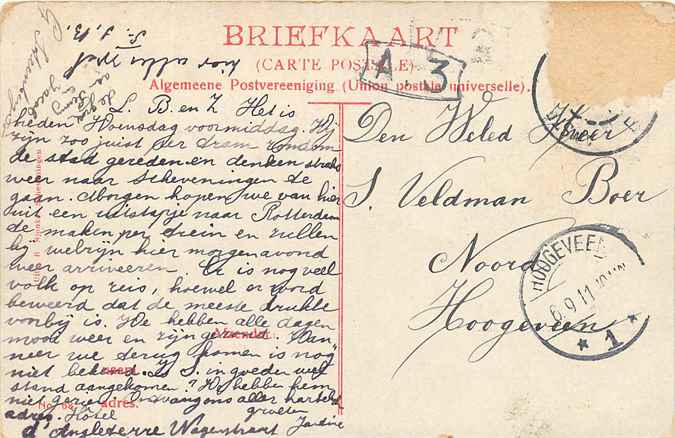 BRIEFKAART
(CARTE POSTALE)
Algemeene Postvereeniging (Union postale universelle).
A. 3
L. B. en Z. Het is
heden Woensdag voormiddag. Wij
zijn zoo juist per tram rondom
de stad gereden en denken straks
weer naar Scheveningen te
gaan. Morgen hopen we van hier
uit een uitstapje naar Rotterdam
te maken, per trein en zullen
bij welzijn hier morgenavond
weer arriveeren. Er is nog veel
volk op reis, hoewel er word
beweerd dat de meeste drukte
voorbij is. We hebben alle dagen
mooi weer en zijn gezond. Wan
neer we terug komen is nog
niet bekend. Is S. in goeden wel
stand aangekomen? We hebben hem
niet gezien. Ontvang ons aller hartel.
groeten
adres. Hotel
d'Angleterre Wagenstraat
Afzender:
naam
adres.
Den Weled Heer
S. Veldman Boer
Noord
Hoogeveen
HOOGEVEEN
6.9.11
* 1 *